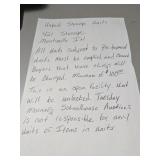 Unpaid Storage Units
Hall Storage
Monticello Ind.
All Units subject to be opened
Units must be emptied and cleaned
Buyers that leave things will
be Charged. Minimum of $100.00
This is an open facility that
will be unlocked Tuesday
Morning. Schoolhouse Auction's
is not responsible for any
Units or Items in units